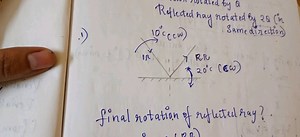 rotated by θ
Reflected ray rotated by 2θ (in
same direction)
.1)
10°c (CCW)
IR
RR
20°c (CW)
final rotation of reflected ray?.